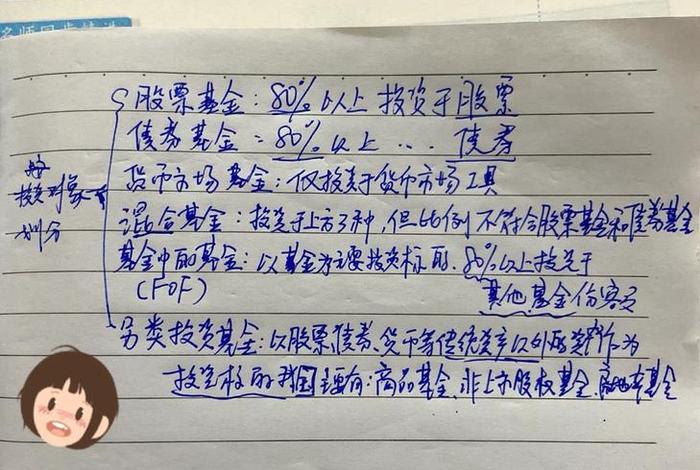 股票基金：80%以上投资于股票
债券基金：80%以上 … 债券
按
投资对象
划分
货币市场基金：仅投资于货币市场工具
混合基金：投资于上方3种，但比例不符合股票基金和债券基金
基金中的基金：以基金为主要投资标的，80%以上投资于
(FOF) 其他基金份额
另类投资基金：以股票债券、货币等传统资产以外的资产作为
投资标的 我国主要有：商品基金、非上市股权基金、房地产基金